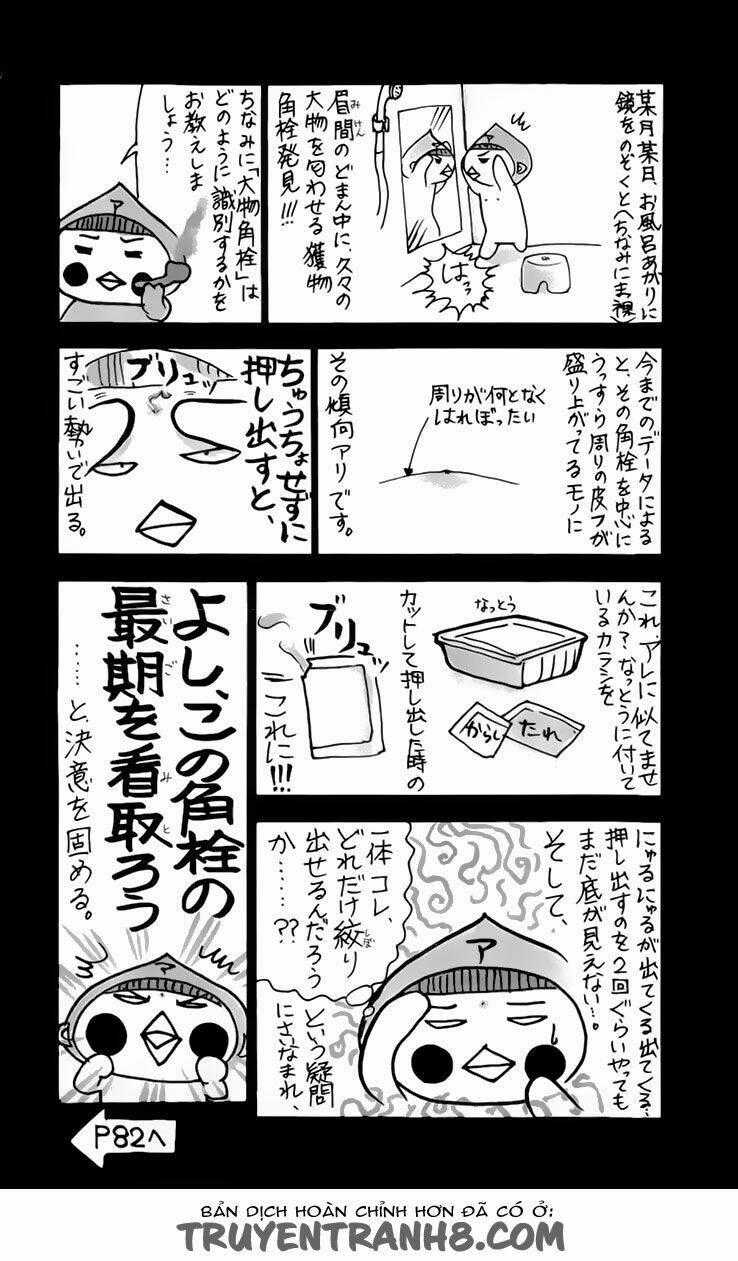 某月某日、お風呂あがりに
鏡をのぞくと(ちなみに全裸)
はぅっ
眉間のどまん中に、久々の
みけん
大物を匂わせる獲物
角栓発見!!!
ちなみに「大物角栓」は
どのように識別するかを
お教えしま
しょう…
ア
今までのデータによる
と、その角栓を中心に
うっすら周りの皮フが
盛り上がってるモノに
周りが何となく
はれぼったい
その傾向アリです。
ちゅうちょせずに
押し出すと、
ブリュッ
すごい勢いで出る。
これ、アレに似てませ
んか?なっとうに付いて
いるカラシを
なっとう
からし
たれ
カットして押し出した時の
ブリュッ
これに!!!
にゅるにゅるが出てくる出てくる…
押し出すのを2回ぐらいやっても
まだ底が見えない…。
そして、
一体コレ、
どれだけ絞り
しぼ
出せるんだろう
か……??
ア
という疑問
にさいなまれ、
よし、この角栓の
最期を看取ろう
さいご
みと
……と、決意を固める。
ア
P82へ
BẢN DỊCH HOÀN CHỈNH HƠN ĐÃ CÓ Ở:
TRUYENTRANH8.COM